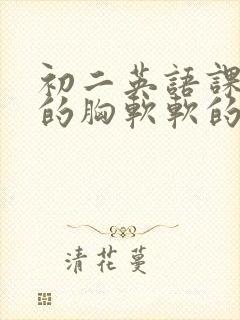 初二英語課
的胸軟軟的
清花蔓